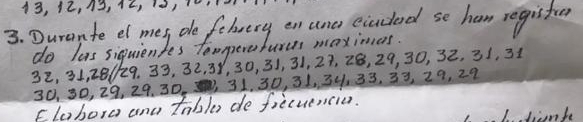 13, 12, 13, 12, 13,
3. Durante el mes de febrery en una ciudad se han registra
do las siguientes temperaturas maximas.
32, 31, 28, 29, 33, 32, 31, 30, 31, 31, 27, 28, 29, 30, 32, 31, 31
30, 30, 29, 29, 30, 31, 30, 31, 34, 33, 33, 29, 29
Elabora una tabla de frecuencia.